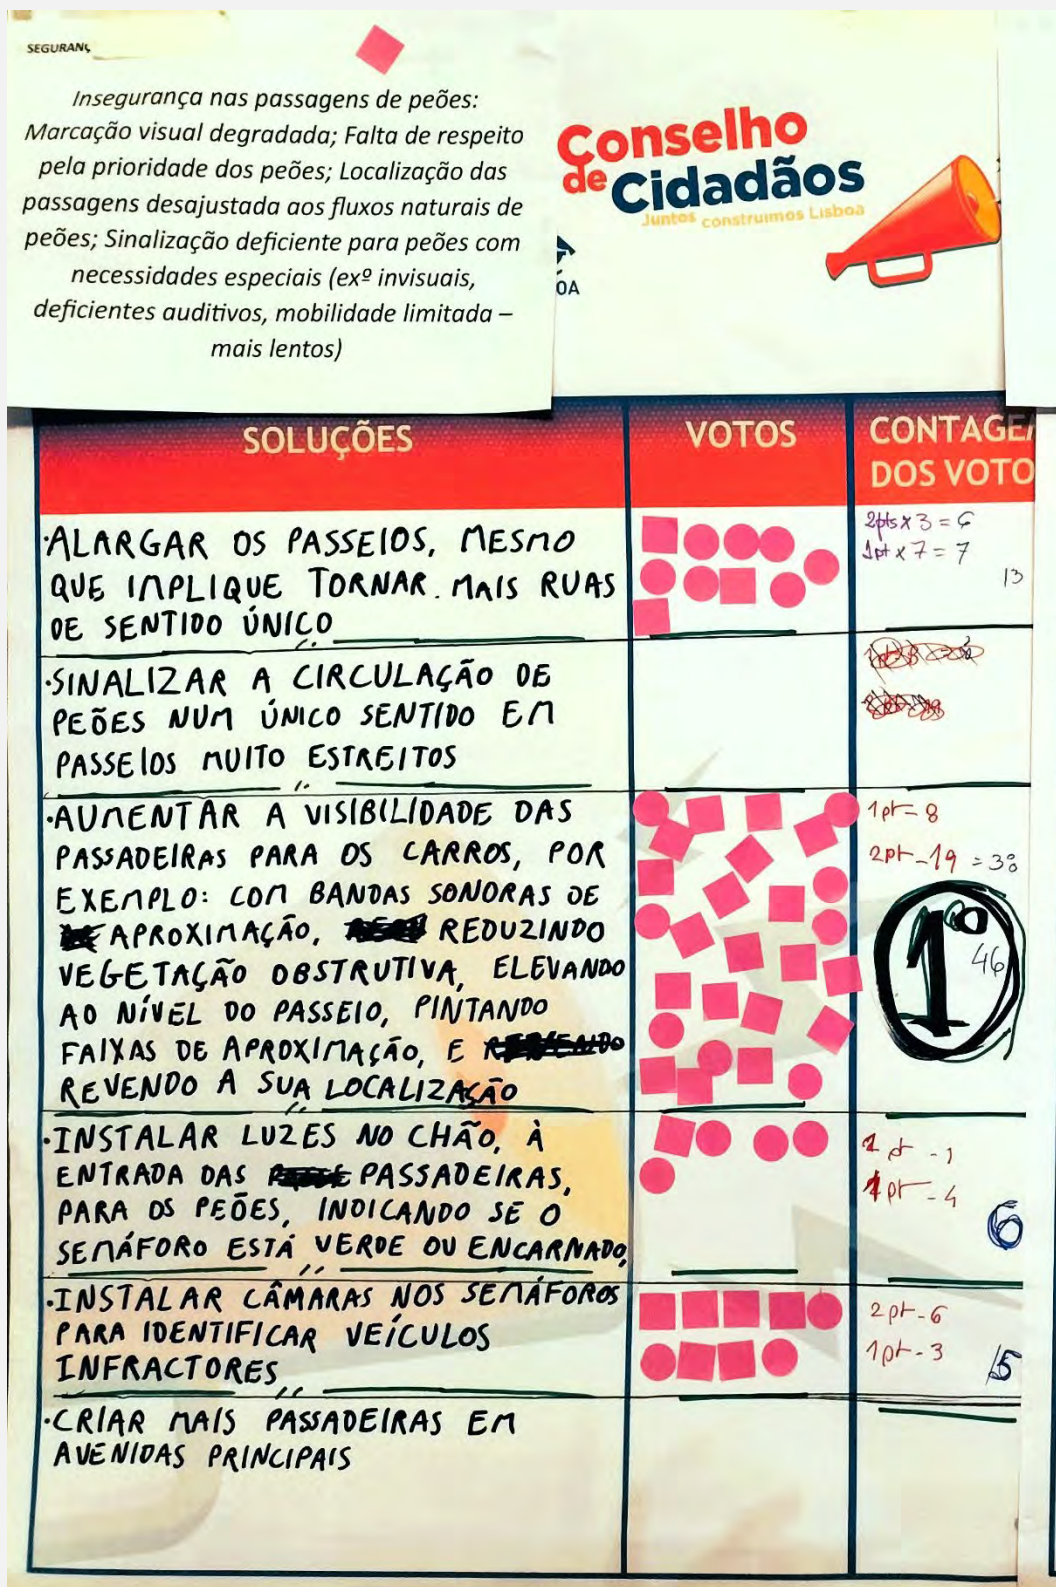 SEGURANÇ
Insegurança nas passagens de peões:
Marcação visual degradada; Falta de respeito
pela prioridade dos peões; Localização das
passagens desajustada aos fluxos naturais de
peões; Sinalização deficiente para peões com
necessidades especiais (exº invisuais,
deficientes auditivos, mobilidade limitada –
mais lentos)
Conselho
de Cidadãos
Juntos construimos Lisboa
OA
SOLUÇÕES
VOTOS
CONTAGEM
DOS VOTO
·ALARGAR OS PASSEIOS, MESMO
QUE IMPLIQUE TORNAR MAIS RUAS
DE SENTIDO ÚNICO
2pts x 3 = 6
1pt x 7 = 7
13
·SINALIZAR A CIRCULAÇÃO DE
PEÕES NUM ÚNICO SENTIDO EM
PASSEIOS MUITO ESTREITOS
·AUMENTAR A VISIBILIDADE DAS
PASSADEIRAS PARA OS CARROS, POR
EXEMPLO: COM BANDAS SONORAS DE
APROXIMAÇÃO, REDUZINDO
VEGETAÇÃO OBSTRUTIVA, ELEVANDO
AO NÍVEL DO PASSEIO, PINTANDO
FAIXAS DE APROXIMAÇÃO, E
REVENDO A SUA LOCALIZAÇÃO
1pt - 8
2pt - 19 = 38
1º
46
·INSTALAR LUZES NO CHÃO, À
ENTRADA DAS PASSADEIRAS,
PARA OS PEÕES, INDICANDO SE O
SEMÁFORO ESTÁ VERDE OU ENCARNADO,
pt - 1
1pt - 4
6
·INSTALAR CÂMARAS NOS SEMÁFOROS
PARA IDENTIFICAR VEÍCULOS
INFRACTORES
2pt - 6
1pt - 3
15
·CRIAR MAIS PASSADEIRAS EM
AVENIDAS PRINCIPAIS